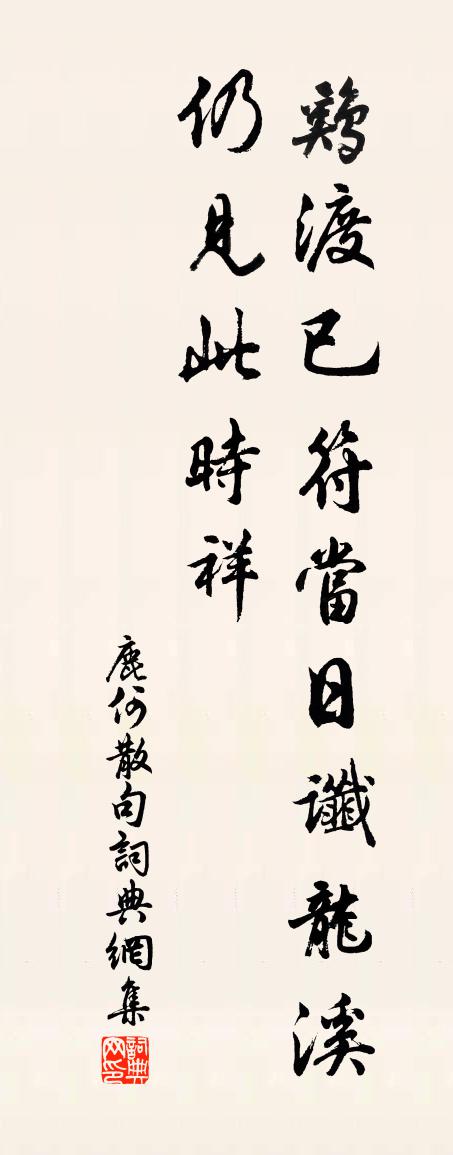 鷄渡已符當日讖龍溪
仍見此時祥
鹿何散句詞典網集
詞典網印